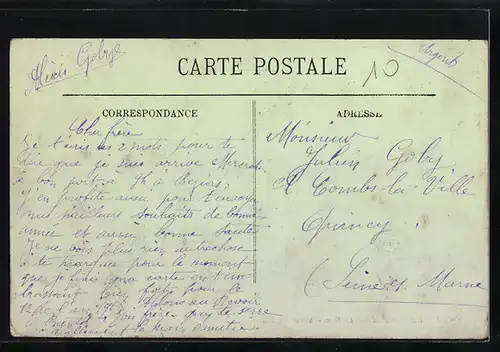 Alexis Goby
Urgent
CARTE POSTALE
10
CORRESPONDANCE
ADRESSE
Cher frère
Je t'écris ces 2 mots pour te
dire que je suis arrivé
à bon port à 9h à Beziers.
j'en profite aussi pour t'envoyer
mes meilleurs souhaits de bonne
année et aussi bonne santé
Je ne vois plus rien autrechose
à te marquer pour le moment
que je finis ma carte en t'em
brassant bien fort pour le
au Revoir
ton frère qui te serre
la main
Monsieur
Julien Goby
A Combs-la-Ville
Quincy
(Seine et Marne